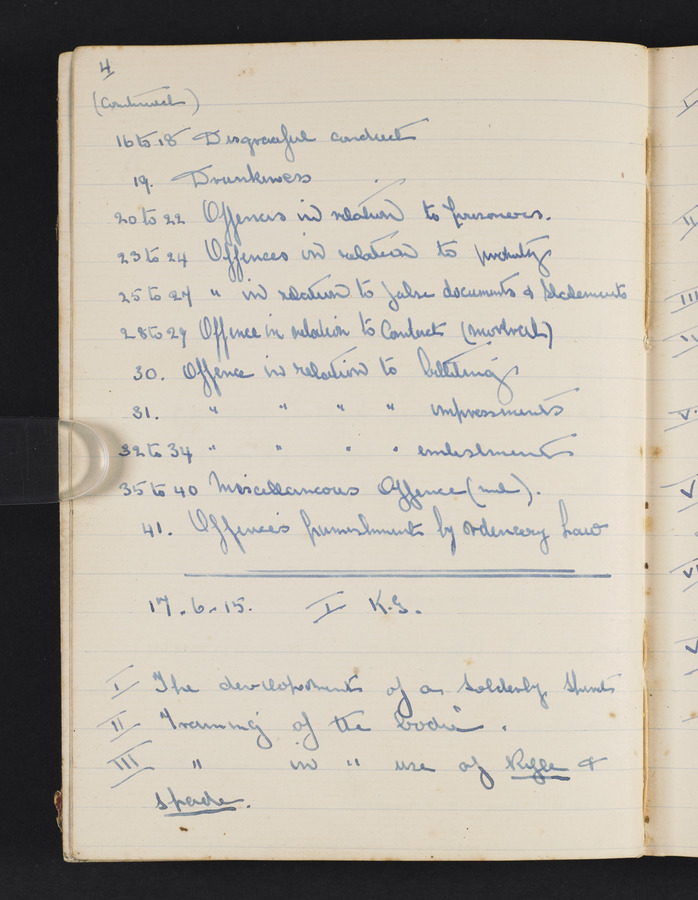 4
(Continued)
16 to 18 Disgraceful conduct
19. Drunkeness
20 to 22 Offences in relation to prisoners.
23 to 24 Offences in relation to
25 to 27 " in relation to false documents & Statements
28 to 29 Offence in relation to Contents
30. Offence in relation to billiting
31. " " " " impressments
32 to 34 " " " " enlishments
35 to 40 Miscellaneous Offence (mil).
41. Offences punishments by ordenery Law
17.6.15. I K.S.
I The developments of a Solderly Spirit
II Training of the bodie.
III " in " use of Rifle &
spade.
I
II
III
V.
V